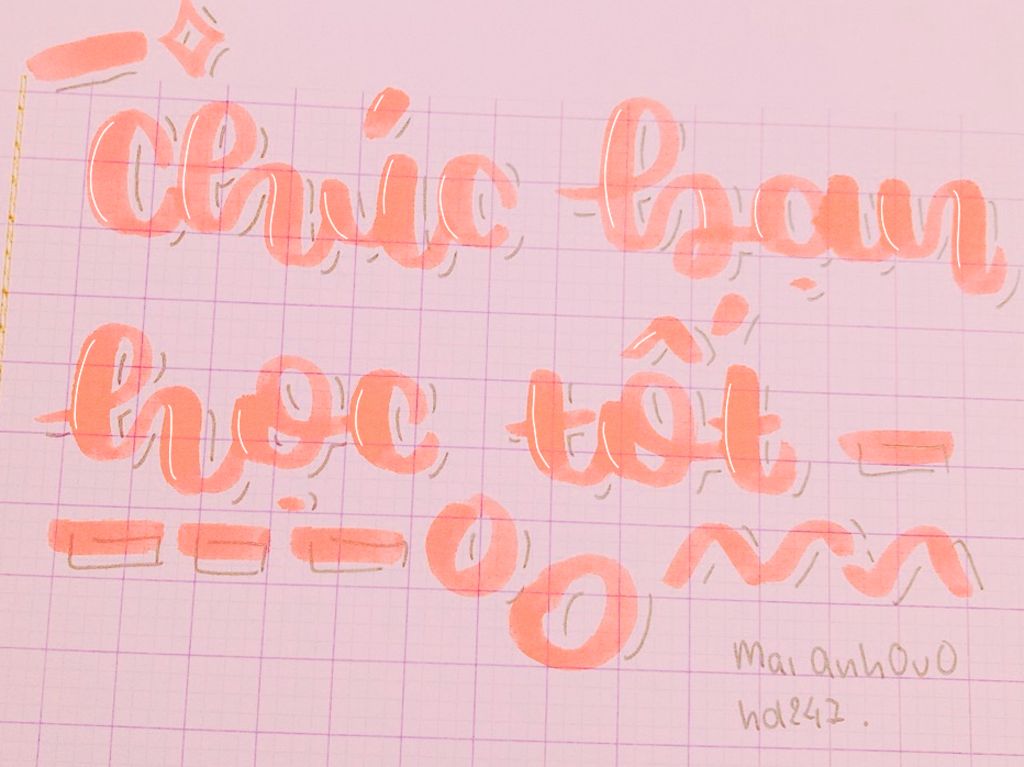 Chúc bạn
học tốt
Mai anhOvO
hd247.